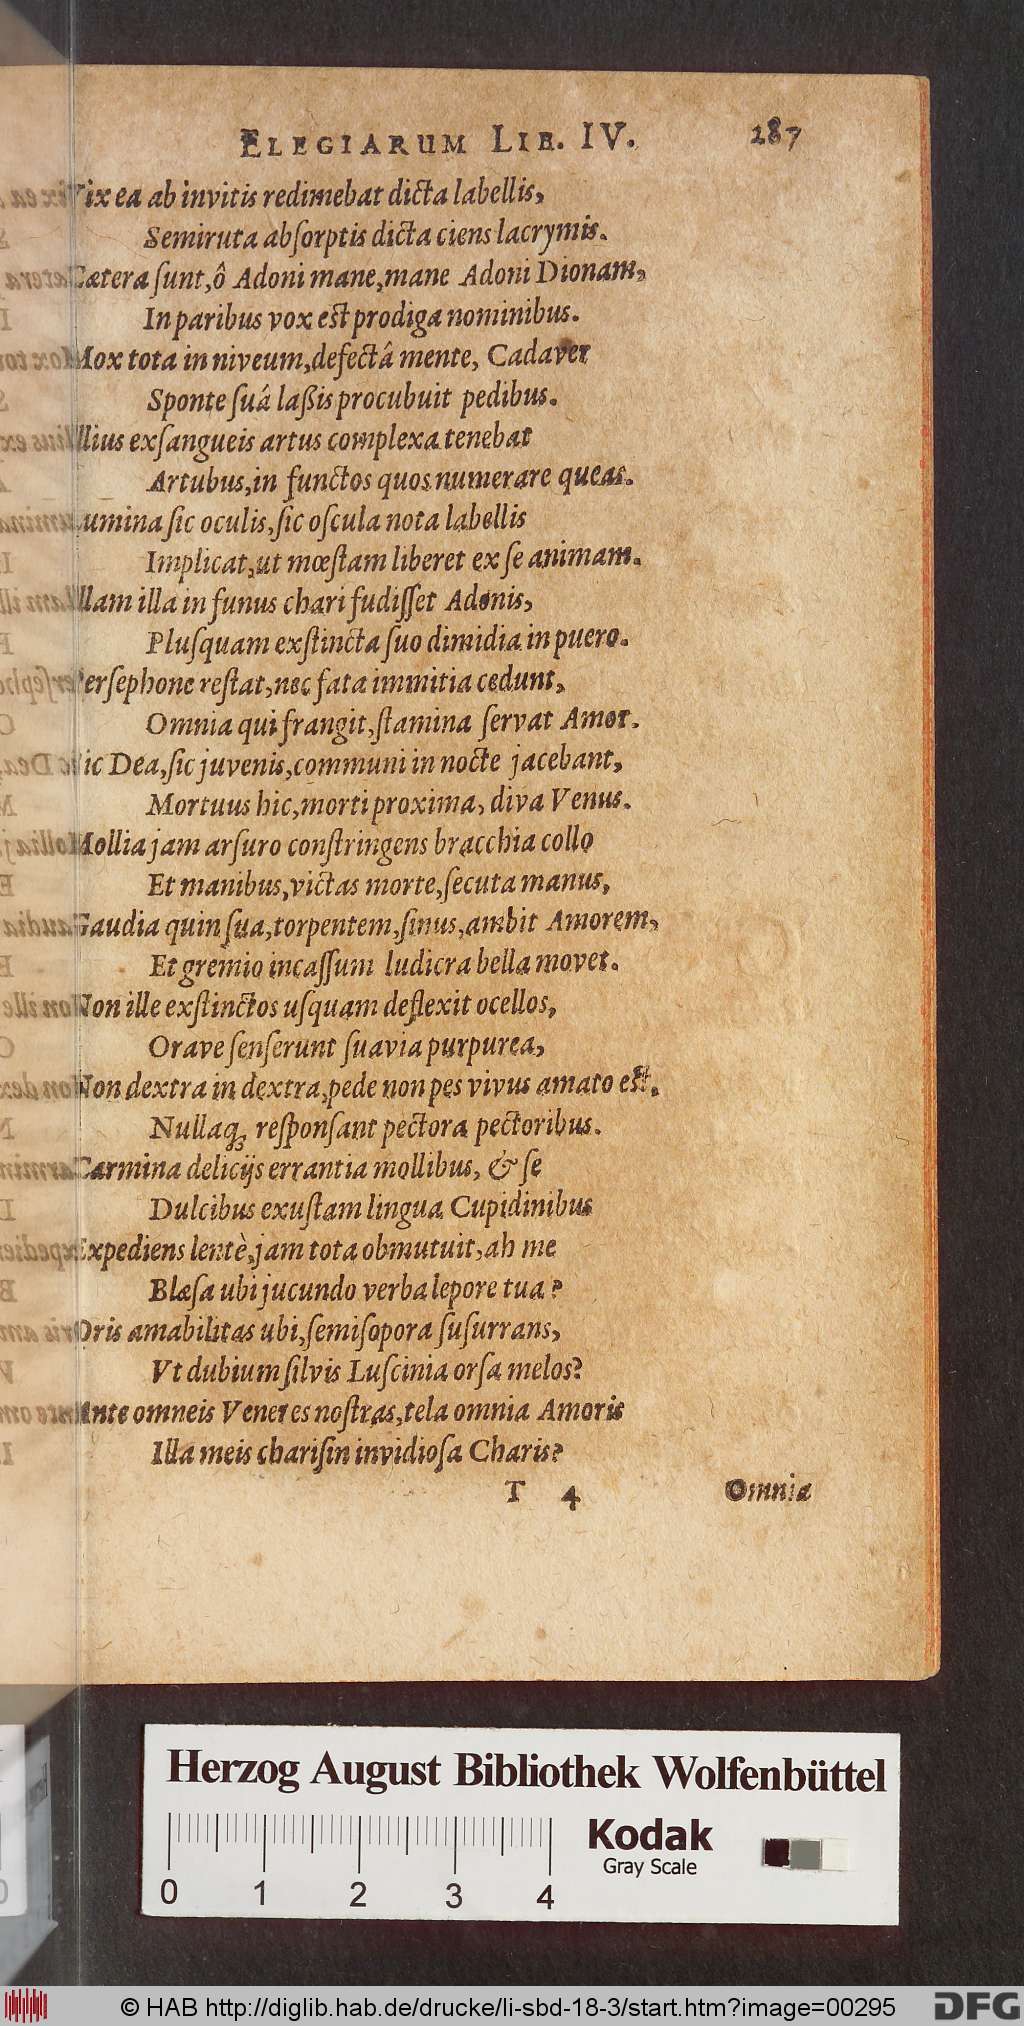 ELEGIARUM LIB. IV. 287
Vix ea ab invitis redimebat dicta labellis,
Semiruta abſorptis dicta ciens lacrymis.
Cætera ſunt, ô Adoni mane, mane Adoni Dionam,
In paribus vox est prodiga nominibus.
Mox tota in niveum, defectâ mente, Cadaver
Sponte ſuâ laßis procubuit pedibus.
Illius exſangueis artus complexa tenebat
Artubus, in functos quos numerare queas.
Lumina ſic oculis, ſic oſcula nota labellis
Implicat, ut mœſtam liberet ex ſe animam.
Illam illa in funus chari fudiſſet Adonis,
Pluſquam exſtincta ſuo dimidia in puero.
Perſephone reſtat, nec fata immitia cedunt,
Omnia qui frangit, ſtamina ſervat Amor.
Sic Dea, ſic juvenis, communi in nocte jacebant,
Mortuus hic, morti proxima, diva Venus.
Mollia jam arſuro conſtringens bracchia collo
Et manibus, victas morte, ſecuta manus,
Gaudia quin ſua, torpentem, ſinus, ambit Amorem,
Et gremio incaſſum ludicra bella movet.
Non ille exſtinctos uſquam deflexit ocellos,
Orave ſenſerunt ſuavia purpurea,
Non dextra in dextra, pede non pes vivus amato eſt.
Nullaq; reſponſant pectora pectoribus.
Carmina delicijs errantia mollibus, & ſe
Dulcibus exuſtam lingua Cupidinibus
Expediens lentè, jam tota obmutuit, ah me
Blæſa ubi jucundo verba lepore tua?
Oris amabilitas ubi, ſemiſopora ſuſurrans,
Vt dubium ſilvis Luſcinia orſa melos?
Ante omneis Veneres noſtras, tela omnia Amoris
Illa meis chariſin invidioſa Charis?
T 4 Omnia
Herzog August Bibliothek Wolfenbüttel
Kodak
Gray Scale
0 1 2 3 4
© HAB http://diglib.hab.de/drucke/li-sbd-18-3/start.htm?image=00295 DFG